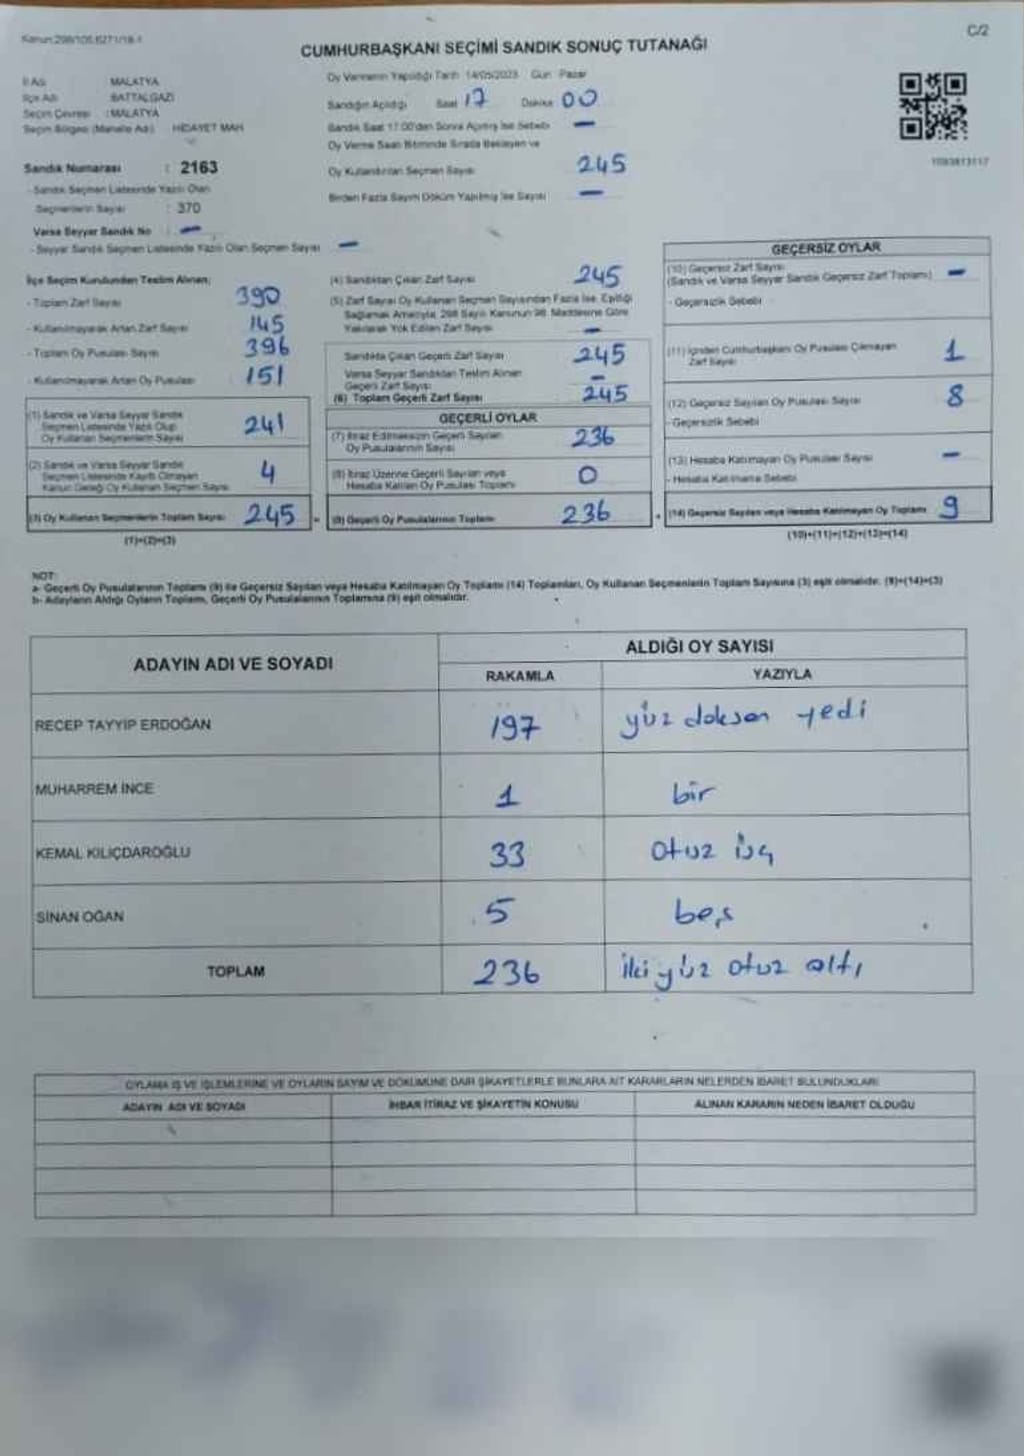 Kanun:298/105.6271/18-1
C/2
CUMHURBAŞKANI SEÇİMİ SANDIK SONUÇ TUTANAĞI
İl Adı : MALATYA
İlçe Adı : BATTALGAZİ
Seçim Çevresi : MALATYA
Seçim Bölgesi (Mahalle Adı) HİDAYET MAH
Sandık Numarası : 2163
- Sandık Seçmen Listesinde Yazılı Olan
Seçmenlerin Sayısı : 370
Varsa Seyyar Sandık No : -
- Seyyar Sandık Seçmen Listesinde Yazılı Olan Seçmen Sayısı -
Oy Vermenin Yapıldığı Tarih 14/05/2023 Gün Pazar
Sandığın Açıldığı Saat 17 Dakika 00
Sandık Saat 17:00'den Sonra Açılmış İse Sebebi -
Oy Verme Saati Bitiminde Sırada Bekleyen ve
Oy Kullandırılan Seçmen Sayısı 245
Birden Fazla Sayım Döküm Yapılmış İse Sayısı -
1093813117
İlçe Seçim Kurulundan Teslim Alınan;
- Toplam Zarf Sayısı 390
- Kullanılmayarak Artan Zarf Sayısı 145
- Toplam Oy Pusulası Sayısı 396
- Kullanılmayarak Artan Oy Pusulası 151
(1) Sandık ve Varsa Seyyar Sandık
Seçmen Listesinde Yazılı Olup
Oy Kullanan Seçmenlerin Sayısı 241
(2) Sandık ve Varsa Seyyar Sandık
Seçmen Listesinde Kayıtlı Olmayan
Kanun Gereği Oy Kullanan Seçmen Sayısı 4
(3) Oy Kullanan Seçmenlerin Toplam Sayısı 245
(1)+(2)=(3)
(4) Sandıktan Çıkan Zarf Sayısı 245
(5) Zarf Sayısı Oy Kullanan Seçmen Sayısından Fazla İse, Eşitliği
Sağlamak Amacıyla, 298 Sayılı Kanunun 98. Maddesine Göre
Yakılarak Yok Edilen Zarf Sayısı -
Sandıkta Çıkan Geçerli Zarf Sayısı 245
Varsa Seyyar Sandıktan Teslim Alınan
Geçerli Zarf Sayısı -
(6) Toplam Geçerli Zarf Sayısı 245
GEÇERLİ OYLAR
(7) İtiraz Edilmeksizin Geçerli Sayılan
Oy Pusulalarının Sayısı 236
(8) İtiraz Üzerine Geçerli Sayılan veya
Hesaba Katılan Oy Pusulası Toplamı 0
(9) Geçerli Oy Pusulalarının Toplamı 236
GEÇERSİZ OYLAR
(10) Geçersiz Zarf Sayısı
(Sandık ve Varsa Seyyar Sandık Geçersiz Zarf Toplamı) -
- Geçersizlik Sebebi
(11) İçinden Cumhurbaşkanı Oy Pusulası Çıkmayan
Zarf Sayısı 1
(12) Geçersiz Sayılan Oy Pusulası Sayısı 8
- Geçersizlik Sebebi
(13) Hesaba Katılmayan Oy Pusulası Sayısı -
- Hesaba Katılmama Sebebi
(14) Geçersiz Sayılan veya Hesaba Katılmayan Oy Toplamı 9
(10)+(11)+(12)+(13)=(14)
NOT:
a- Geçerli Oy Pusulalarının Toplamı (9) ile Geçersiz Sayılan veya Hesaba Katılmayan Oy Toplamı (14) Toplamları, Oy Kullanan Seçmenlerin Toplam Sayısına (3) eşit olmalıdır. (9)+(14)=(3)
b- Adayların Aldığı Oyların Toplamı, Geçerli Oy Pusulalarının Toplamına (9) eşit olmalıdır.
ADAYIN ADI VE SOYADI
ALDIĞI OY SAYISI
RAKAMLA YAZIYLA
RECEP TAYYİP ERDOĞAN 197 yüz doksan yedi
MUHARREM İNCE 1 bir
KEMAL KILIÇDAROĞLU 33 otuz üç
SİNAN OĞAN 5 beş
TOPLAM 236 iki yüz otuz altı
OYLAMA İŞ VE İŞLEMLERİNE VE OYLARIN SAYIM VE DÖKÜMÜNE DAİR ŞİKAYETLERLE BUNLARA AİT KARARLARIN NELERDEN İBARET BULUNDUKLARI
ADAYIN ADI VE SOYADI İHBAR İTİRAZ VE ŞİKAYETİN KONUSU ALINAN KARARIN NEDEN İBARET OLDUĞU